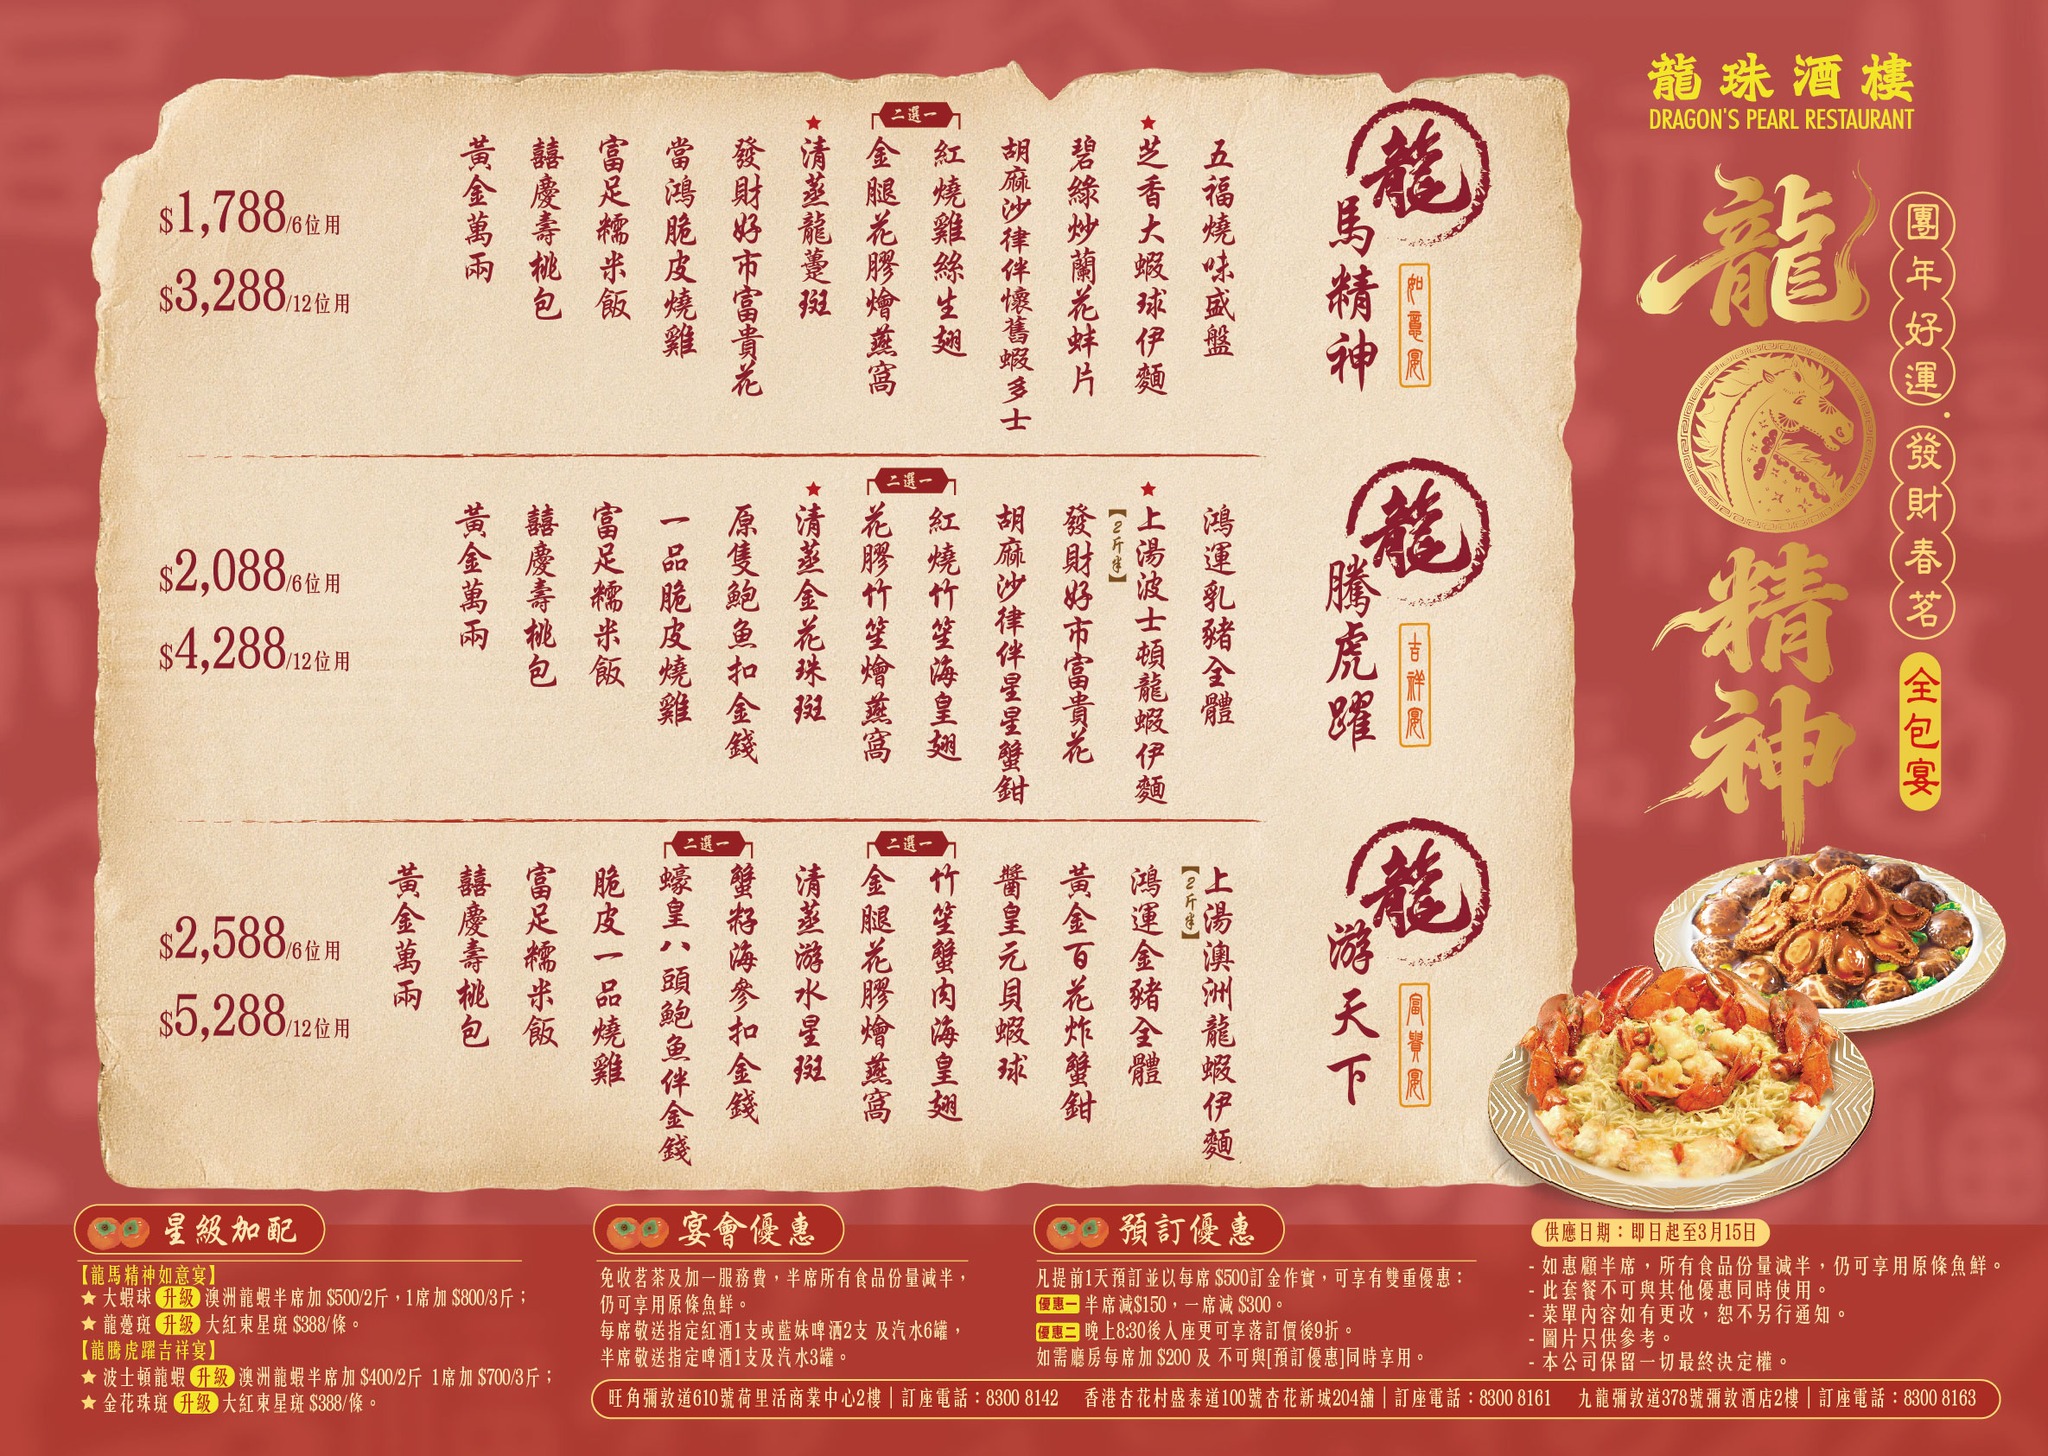 龍珠酒樓
DRAGON'S PEARL RESTAURANT
團年好運．發財春茗
全包宴
龍
精神
龍馬精神
如意宴
五福燒味盛盤
★芝香大蝦球伊麵
碧綠炒蘭花蚌片
胡麻沙律伴懷舊蝦多士
二選一
紅燒雞絲生翅
金腿花膠燴燕窩
★清蒸龍躉斑
發財好市富貴花
當鴻脆皮燒雞
富足糯米飯
囍慶壽桃包
黃金萬兩
$1,788/6位用
$3,288/12位用
龍騰虎躍
吉祥宴
鴻運乳豬全體
★上湯波士頓龍蝦伊麵
【2斤半】
發財好市富貴花
胡麻沙律伴星星蟹鉗
二選一
紅燒竹笙海皇翅
花膠竹笙燴燕窩
★清蒸金花珠斑
原隻鮑魚扣金錢
一品脆皮燒雞
富足糯米飯
囍慶壽桃包
黃金萬兩
$2,088/6位用
$4,288/12位用
龍游天下
富貴宴
上湯澳洲龍蝦伊麵
【2斤半】
鴻運金豬全體
黃金百花炸蟹鉗
醬皇元貝蝦球
二選一
竹笙蟹肉海皇翅
金腿花膠燴燕窩
清蒸游水星斑
二選一
蟹籽海參扣金錢
蠔皇八頭鮑魚伴金錢
脆皮一品燒雞
富足糯米飯
囍慶壽桃包
黃金萬兩
$2,588/6位用
$5,288/12位用
星級加配
【龍馬精神如意宴】
★ 大蝦球 升級 澳洲龍蝦半席加 $500/2斤，1席加 $800/3斤；
★ 龍躉斑 升級 大紅東星斑 $388/條。
【龍騰虎躍吉祥宴】
★ 波士頓龍蝦 升級 澳洲龍蝦半席加 $400/2斤 1席加 $700/3斤；
★ 金花珠斑 升級 大紅東星斑 $388/條。
宴會優惠
免收茗茶及加一服務費，半席所有食品份量減半，
仍可享用原條魚鮮。
每席敬送指定紅酒1支或藍妹啤酒2支 及汽水6罐，
半席敬送指定啤酒1支及汽水3罐。
預訂優惠
凡提前1天預訂並以每席 $500訂金作實，可享有雙重優惠：
優惠一 半席減$150，一席減 $300。
優惠二 晚上8:30後入座更可享落訂價後9折。
如需廳房每席加 $200 及 不可與[預訂優惠]同時享用。
供應日期：即日起至3月15日
- 如惠顧半席，所有食品份量減半，仍可享用原條魚鮮。
- 此套餐不可與其他優惠同時使用。
- 菜單內容如有更改，恕不另行通知。
- 圖片只供參考。
- 本公司保留一切最終決定權。
旺角彌敦道610號荷里活商業中心2樓 | 訂座電話：8300 8142 香港杏花村盛泰道100號杏花新城204舖 | 訂座電話：8300 8161 九龍彌敦道378號彌敦酒店2樓 | 訂座電話：8300 8163